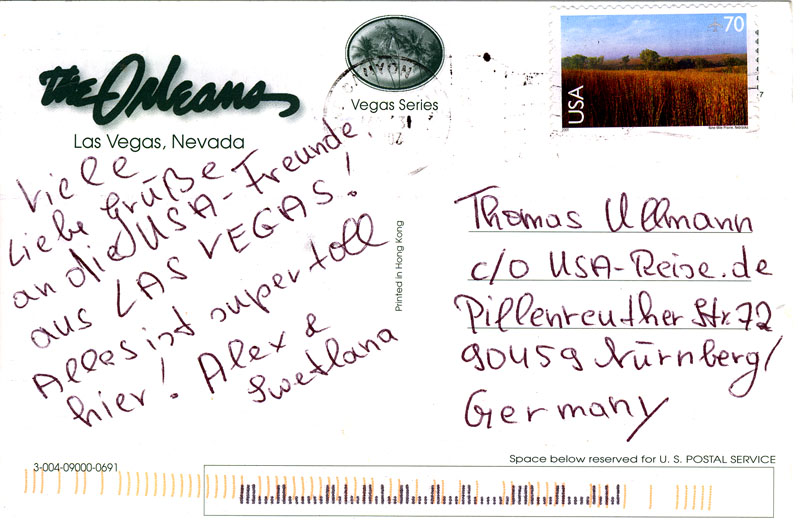 The Orleans
Las Vegas, Nevada
Vegas Series
USA
70
Viele
liebe Grüße
an die USA-Freunde
aus LAS VEGAS!
Alles ist super toll
hier! Alex &
Swetlana
Printed in Hong Kong
Thomas Ullmann
c/o USA-Reise.de
Pillenreuther Str. 72
90459 Nürnberg/
Germany
3-004-09000-0691
Space below reserved for U. S. POSTAL SERVICE